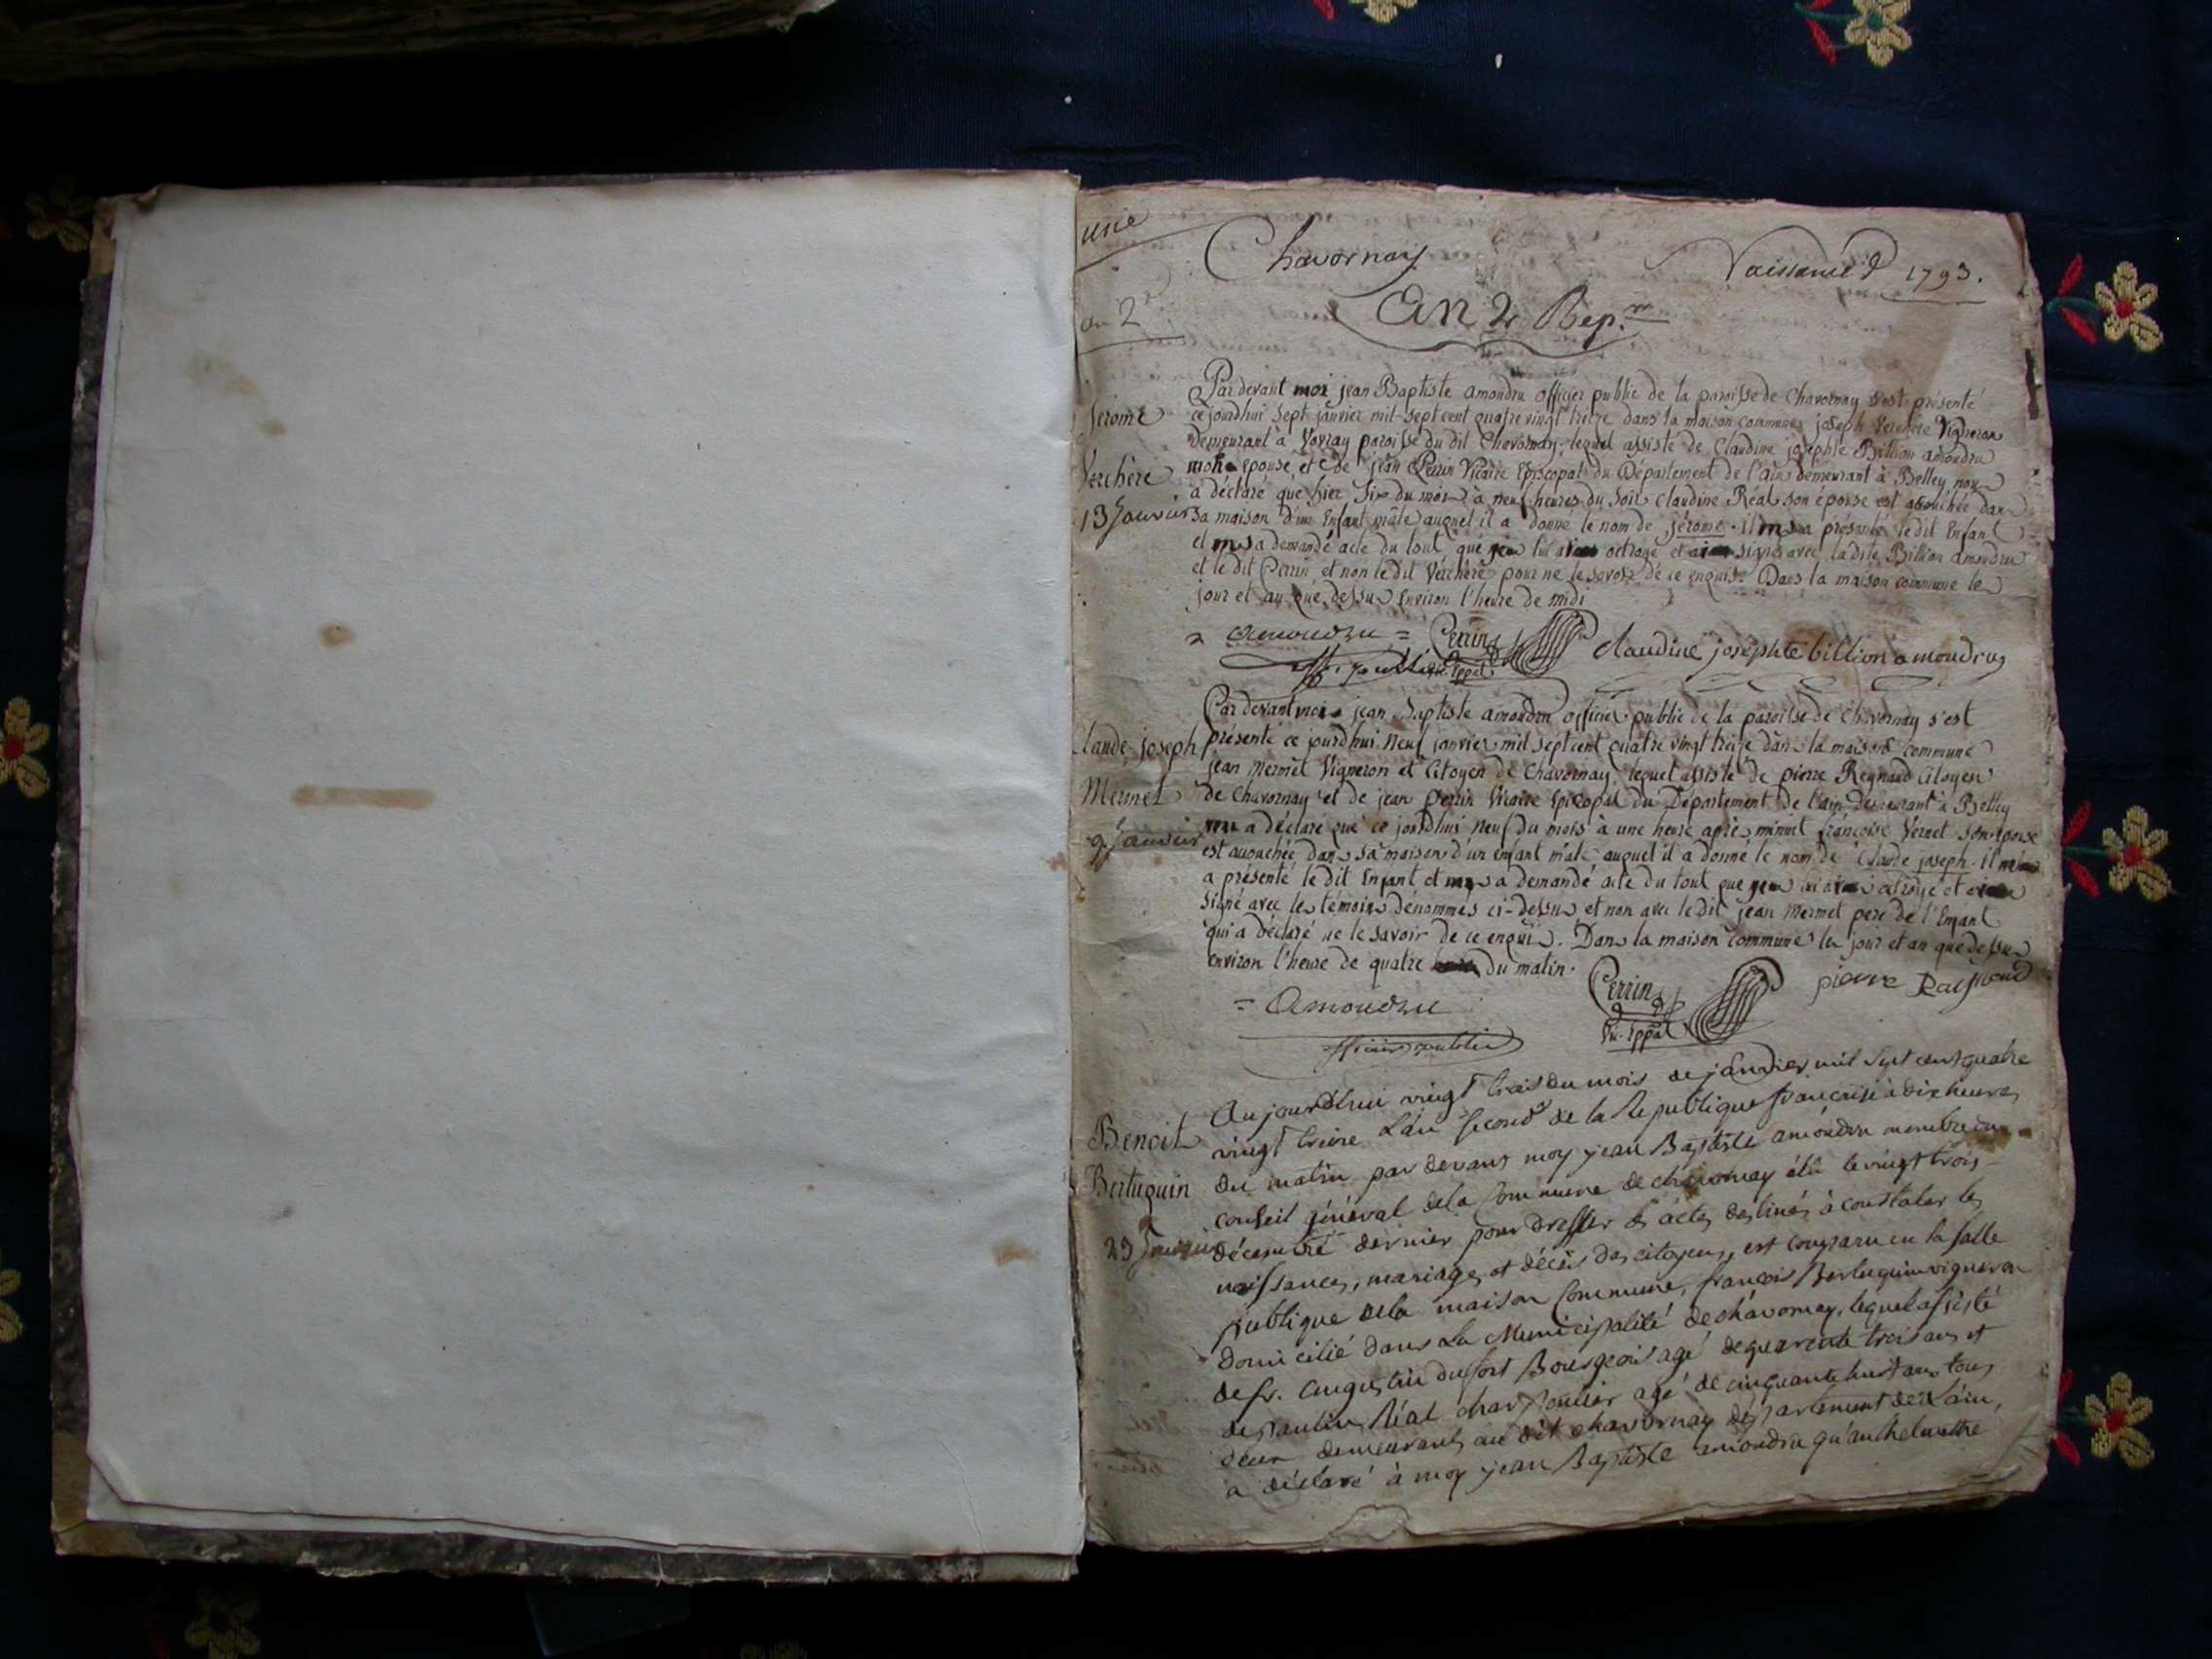 Chavornay
Naissances 1793.
an 2
An 2 Rep.
Pardevant moi jean Baptiste amoudru officier public de la paroisse de Chavornay s'est présenté
Jérome
ce jourdhui sept janvier mil sept cent quatre vingt treize dans la maison commune joseph Verchère Vigneron
demeurant à Vovray paroisse du dit Chavornay, lequel assisté de Claudine josephte Billion amoudru
Verchère
mon epouse et de jean Perrin Vicaire Episcopal du Département de l'ain demeurant à Belley
a déclaré que hier six du mois à neuf heures du soir Claudine Réal son épouse est accouchée dans
13 Janvier
sa maison d'un Enfant mâle auquel il a donné le nom de jérome. il m'a présenté le dit Enfant
et m'a demandé acte du tout, que lui octroyé et signé avec la dite Billion amoudru
et le dit Perrin et non le dit Verchère pour ne le savoir de ce enquis. Dans la maison commune le
jour et an que dessus environ l'heure de midi
= amoudru = Perrin claudine joséphte billion amoudru
Vic. Eppal
Pardevant moi jean Baptiste amoudru officier public de la paroisse de Chavornay s'est
Claude joseph
présenté ce jourdhui neuf janvier mil sept cent quatre vingt treize dans la maison commune
jean Mermet Vigneron et Citoyen de Chavornay, lequel assisté de pierre Reynaud Citoyen
Mermet
de Chavornay et de jean perrin Vicaire Episcopal du Département de l'ain demeurant à Belley
a déclaré que ce jourdhui neuf du mois à une heure après minuit françoise Vernet son épouse
9 Janvier
est accouchée dans sa maison d'un enfant mâle auquel il a donné le nom de Claude joseph. il
a présenté le dit Enfant et a demandé acte du tout que octroyé et
signé avec les témoins dénommés ci-dessus et non avec le dit jean Mermet pere de l'Enfant
qui a déclaré ne le savoir de ce enquis. Dans la maison commune les jour et an que dessus
environ l'heure de quatre du matin.
= Amoudru Perrin pierre
Vic. Eppal
officier public
Aujourd'hui vingt trois du mois de janvier mil sept cent quatre
Benoit
vingt treize L'an second de la republique françoise à dix heures
du matin par devant moy jean Baptiste amoudru membre du
Berluquin
conseil général de la Commune de chavornay élû le vingt trois
23 Janvier
décembre dernier pour dresser les actes destinés à constater les
naissances, mariages et décès des citoyens, est comparu en la salle
publique de la maison Commune, françois Berluquin vigneron
domicilié dans La Municipalité de chavornay, lequel assisté
de fr. augustin dufort Bourgeois agé de quarante trois ans et
de paulin Réal charpentier agé de cinquante huit ans tous
deux demeurants au dit chavornay département de L'ain,
a déclaré à moy jean Baptiste amoudru qu'anthelmette